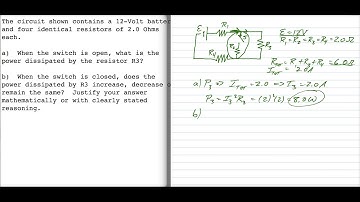 The circuit shown contains a 12-Volt batter
and four identical resistors of 2.0 Ohms
each.
a)  When the switch is open, what is the
power dissipated by the resistor R3?
b)  When the switch is closed, does the
power dissipated by R3 increase, decrease o
remain the same?  Justify your answer
mathematically or with clearly stated
reasoning.
ε R₁
R₃
R₄
ε = 12V
R₁ = R₂ = R₃ = R₄ = 2.0 Ω
= 6.0 Ω
2.0A
a) P₃ ⇒ I_TOT = 2.0 ⇒ I₃ = 2.0A
P₃ = I₃²R₃ = (2)²(2) = 8.0 W
b)